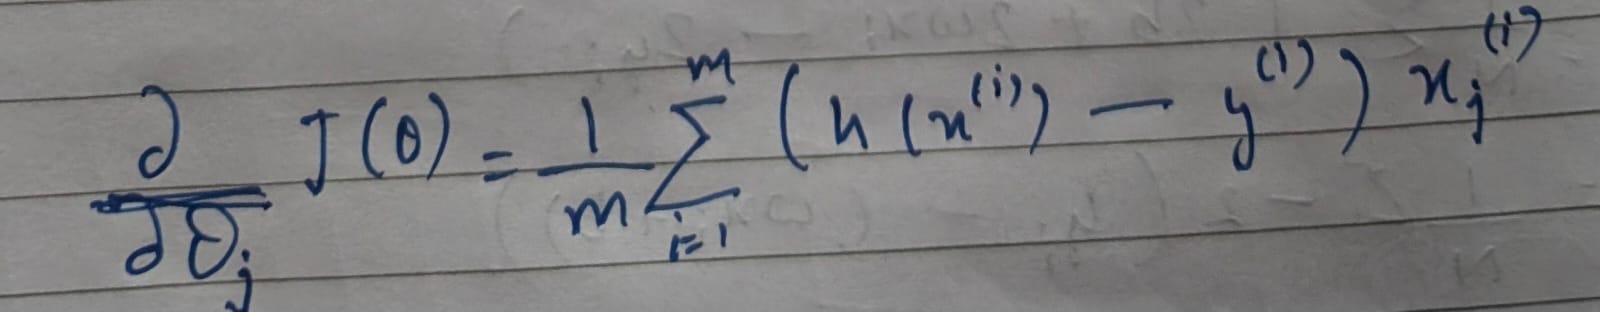 ∂/∂θ_j J(θ) = 1/m ∑_{i=1}^{m} (h(x^{(i)}) − y^{(i)}) x_j^{(i)}